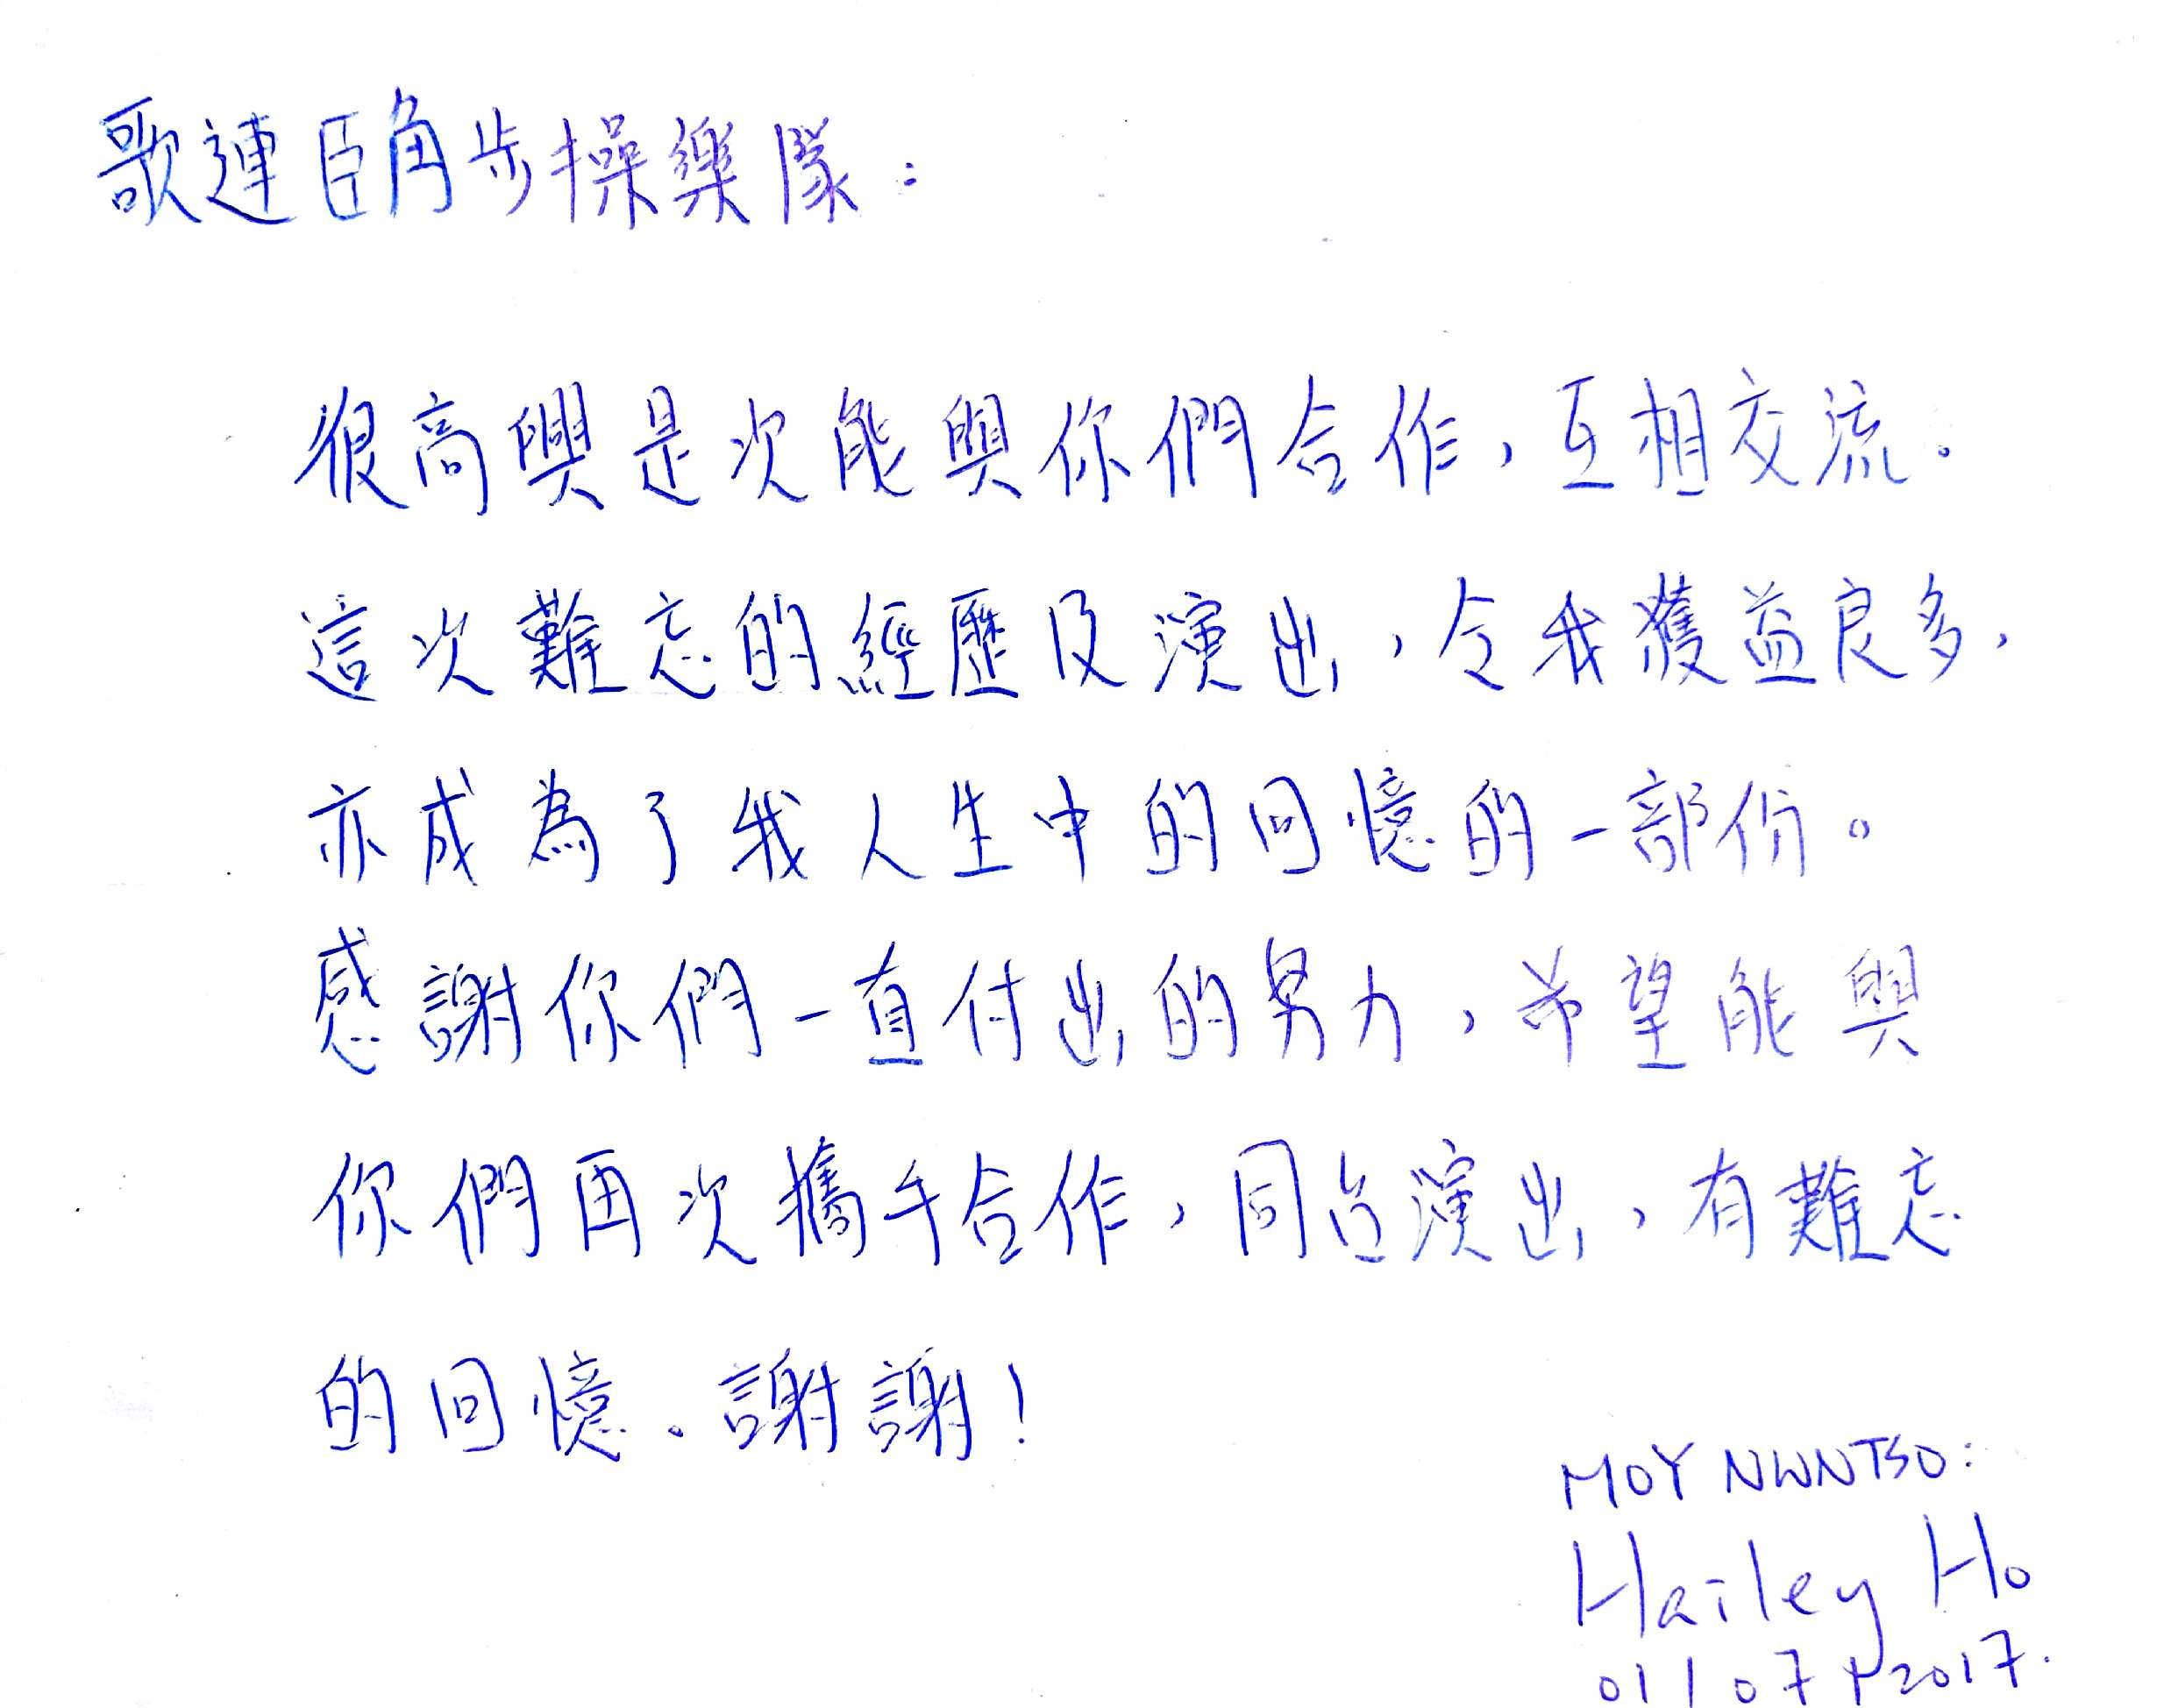 歌連臣角步操樂隊：
很高興是次能與你們合作，互相交流。
這次難忘的經歷及演出，令我獲益良多，
亦成為了我人生中的回憶的一部份。
感謝你們一直付出的努力，希望能與
你們再次攜手合作，同台演出，有難忘
的回憶。謝謝！
MOY NWNTSO：
Hailey Ho
01/07/2017.